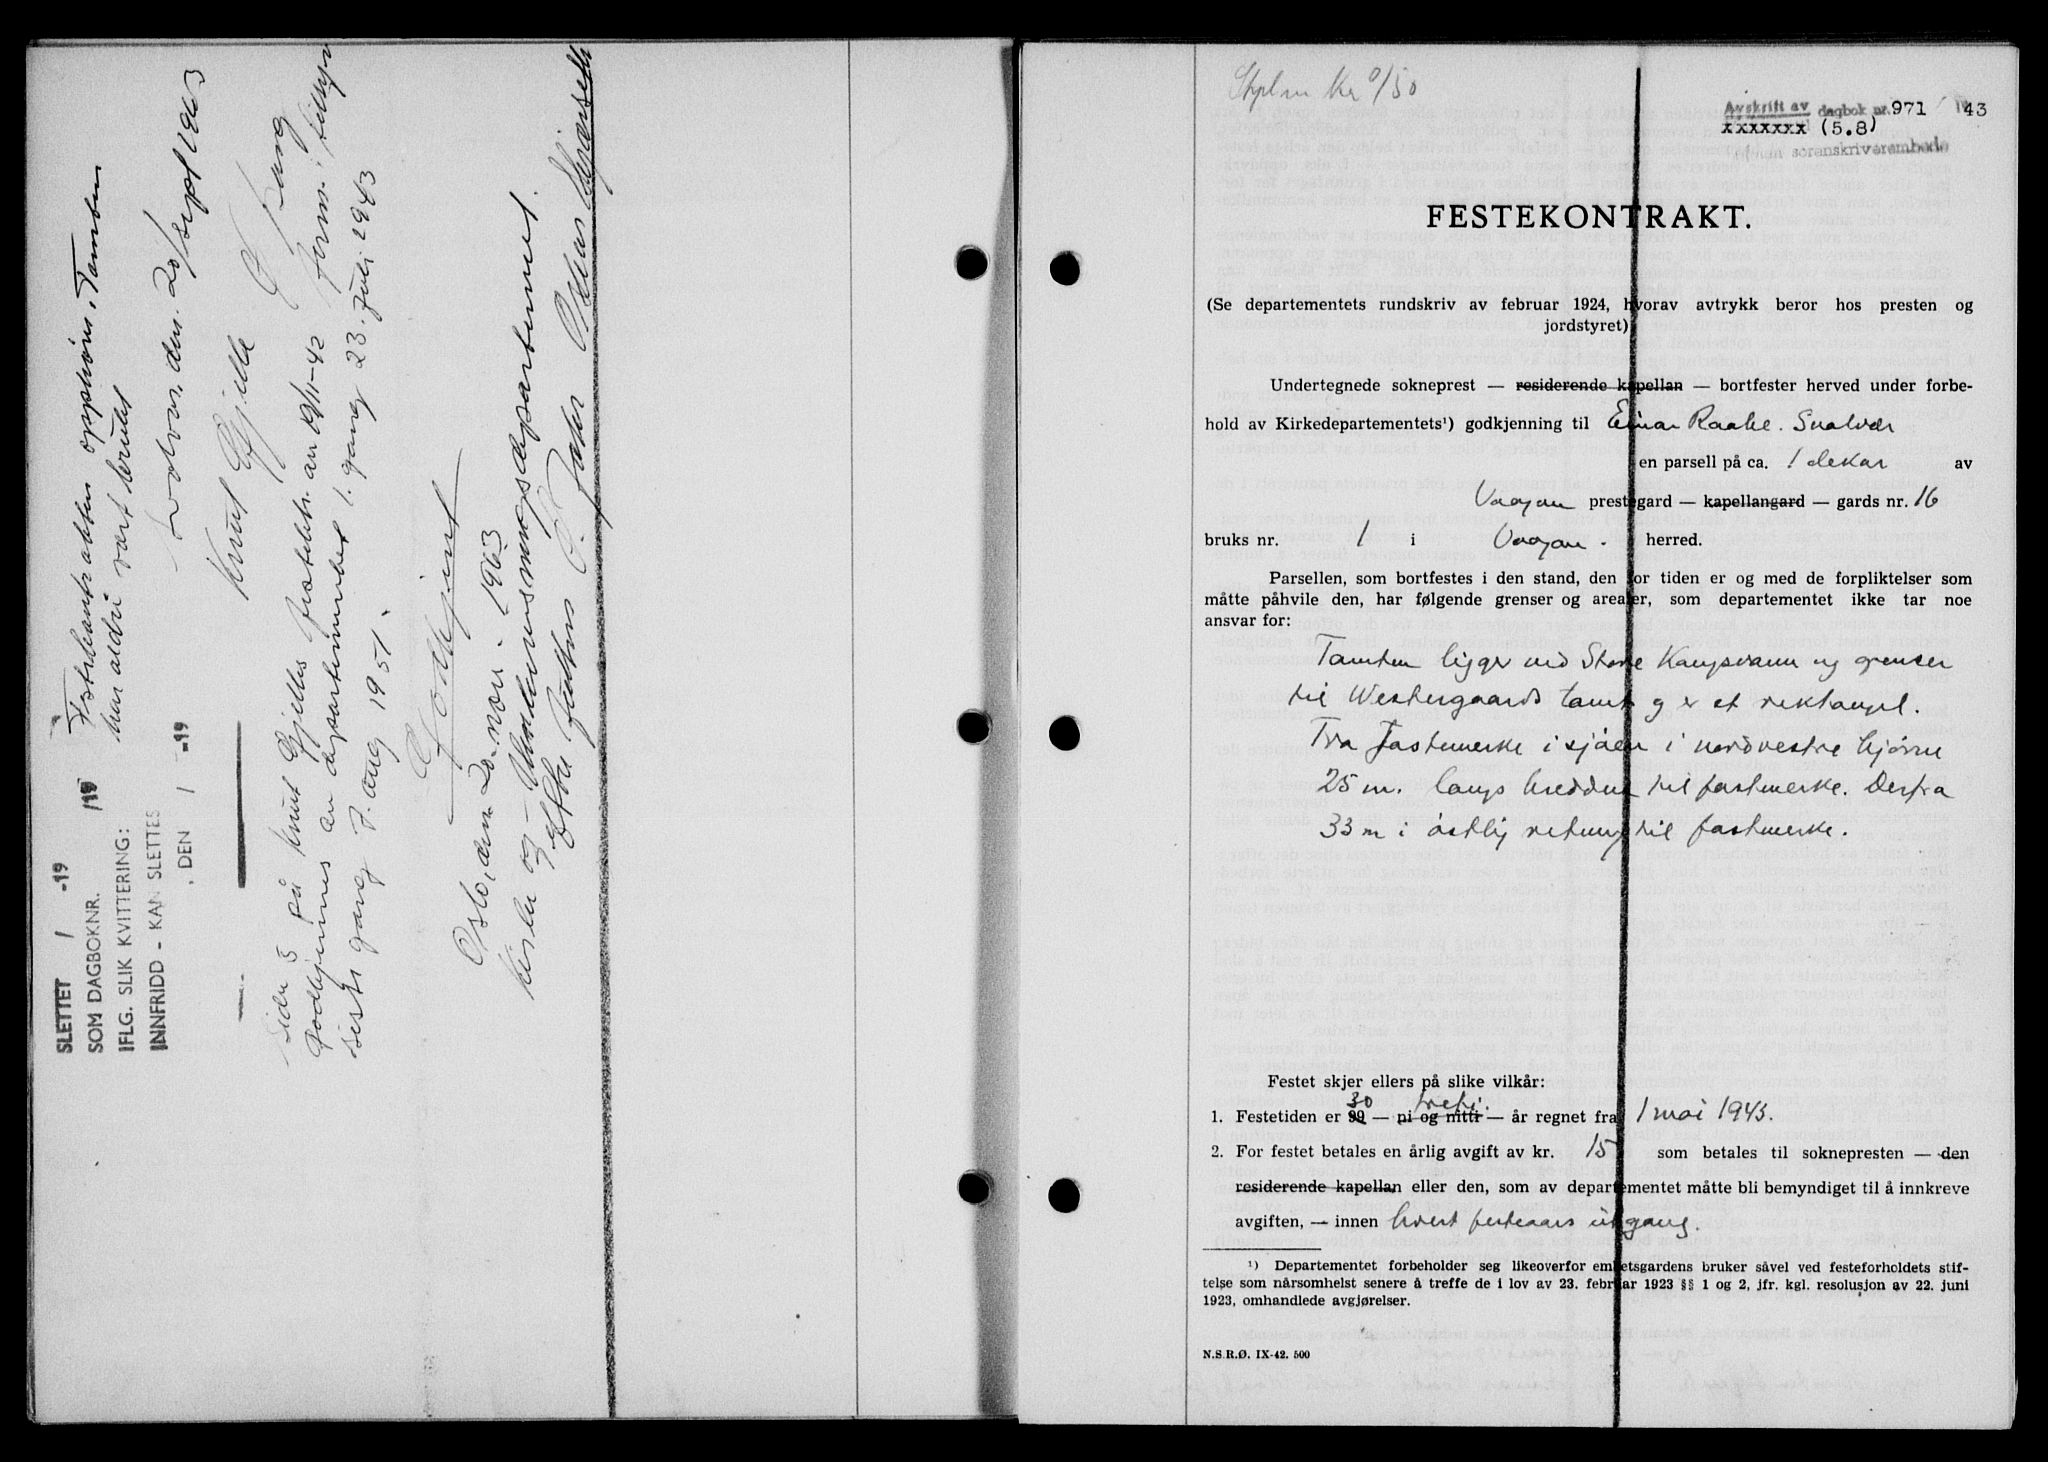 SLETTET 1 -19
SOM DAGBOKNR. /19
IFLG. SLIK KVITTERING:
INNFRIDD - KAN SLETTES
, DEN 1 -19
Festekontrakten opphøris. Tomten
har aldri vært brukt
den 20/sept 1963
Knut Gjelle
Side 3 på Knut Gjelles
godkjennes av departementet 1. gang 23. juli 1943
sist gang 7. aug 1951.
Godkjent
Oslo, den 20. nov. 1963
Kirke og – Undervisningsdepartementet.
Etter fullm
Stpl.m Kr 0/50
Avskrift av dagbok nr. 971 / 19 43
xxxxxxx (5.8)
sorenskriverembede
FESTEKONTRAKT.
(Se departementets rundskriv av februar 1924, hvorav avtrykk beror hos presten og
jordstyret)
Undertegnede sokneprest — residerende kapellan — bortfester herved under forbe-
hold av Kirkedepartementets¹) godkjenning til Einar Raake. Svolvær
en parsell på ca. 1 dekar av
Vaagan prestegard — kapellangard — gards nr. 16
bruks nr. 1 i Vaagan. herred.
Parsellen, som bortfestes i den stand, den for tiden er og med de forpliktelser som
måtte påhvile den, har følgende grenser og arealer, som departementet ikke tar noe
ansvar for:
Tomten ligger ved Store Kongsvann og grenser
til Westergaards tomt og er et rektangel.
Fra fastmerke i sjøen i nordvestre hjørne
25 m. langs bredden til fastmerke. Derfra
33 m i østlig retning til fastmerke.
Festet skjer ellers på slike vilkår:
30 tretti.
1. Festetiden er 99 — ni og nitti — år regnet fra 1 mai 1943.
2. For festet betales en årlig avgift av kr. 15 som betales til soknepresten — den
residerende kapellan eller den, som av departementet måtte bli bemyndiget til å innkreve
avgiften, — innen hvert festeaars utgang.
¹) Departementet forbeholder seg likeoverfor embetsgardens bruker såvel ved festeforholdets stif-
telse som nårsomhelst senere å treffe de i lov av 23. februar 1923 §§ 1 og 2, jfr. kgl. resolusjon av 22. juni
1923, omhandlede avgjørelser.
N.S.R.Ø. IX-42. 500